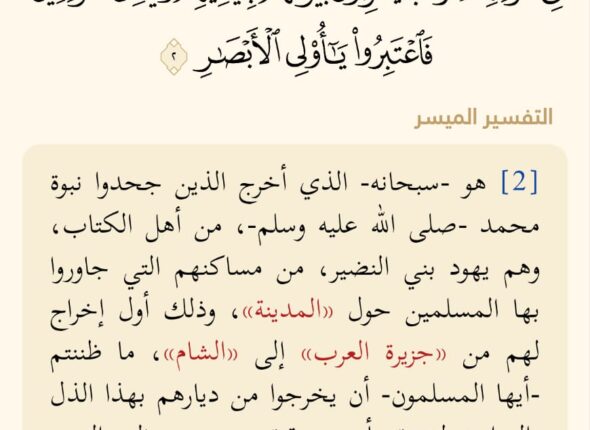 فَٱعْتَبِرُوا۟ يَـٰٓأُو۟لِى ٱلْأَبْصَـٰرِ ٢
التفسير الميسر
[2] هو -سبحانه- الذي أخرج الذين جحدوا نبوة
محمد -صلى الله عليه وسلم-، من أهل الكتاب،
وهم يهود بني النضير، من مساكنهم التي جاوروا
بها المسلمين حول «المدينة»، وذلك أول إخراج
لهم من «جزيرة العرب» إلى «الشام»، ما ظننتم
-أيها المسلمون- أن يخرجوا من ديارهم بهذا الذل